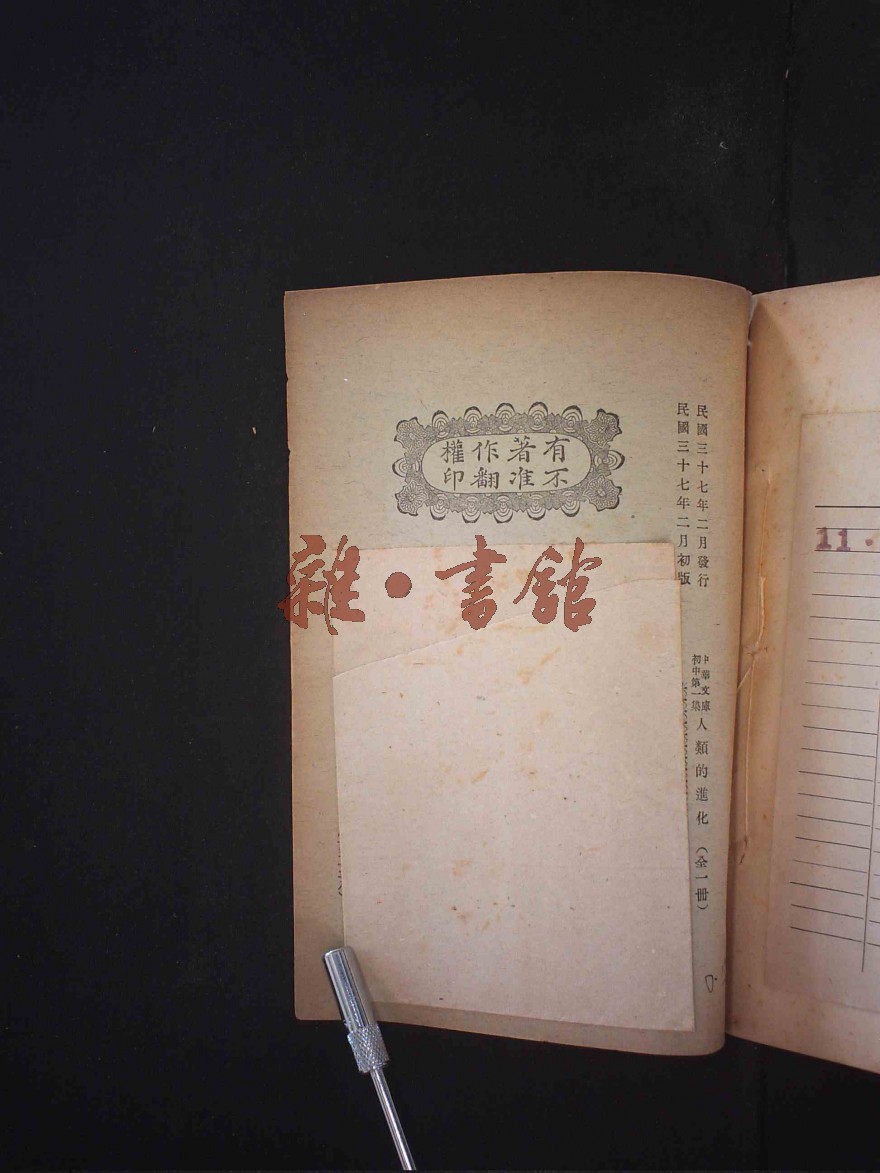 民國三十七年二月發行
民國三十七年二月初版
中華文庫
初中第一集
人類的進化（全一冊）
有著作權
不准翻印
雜·書館
11.